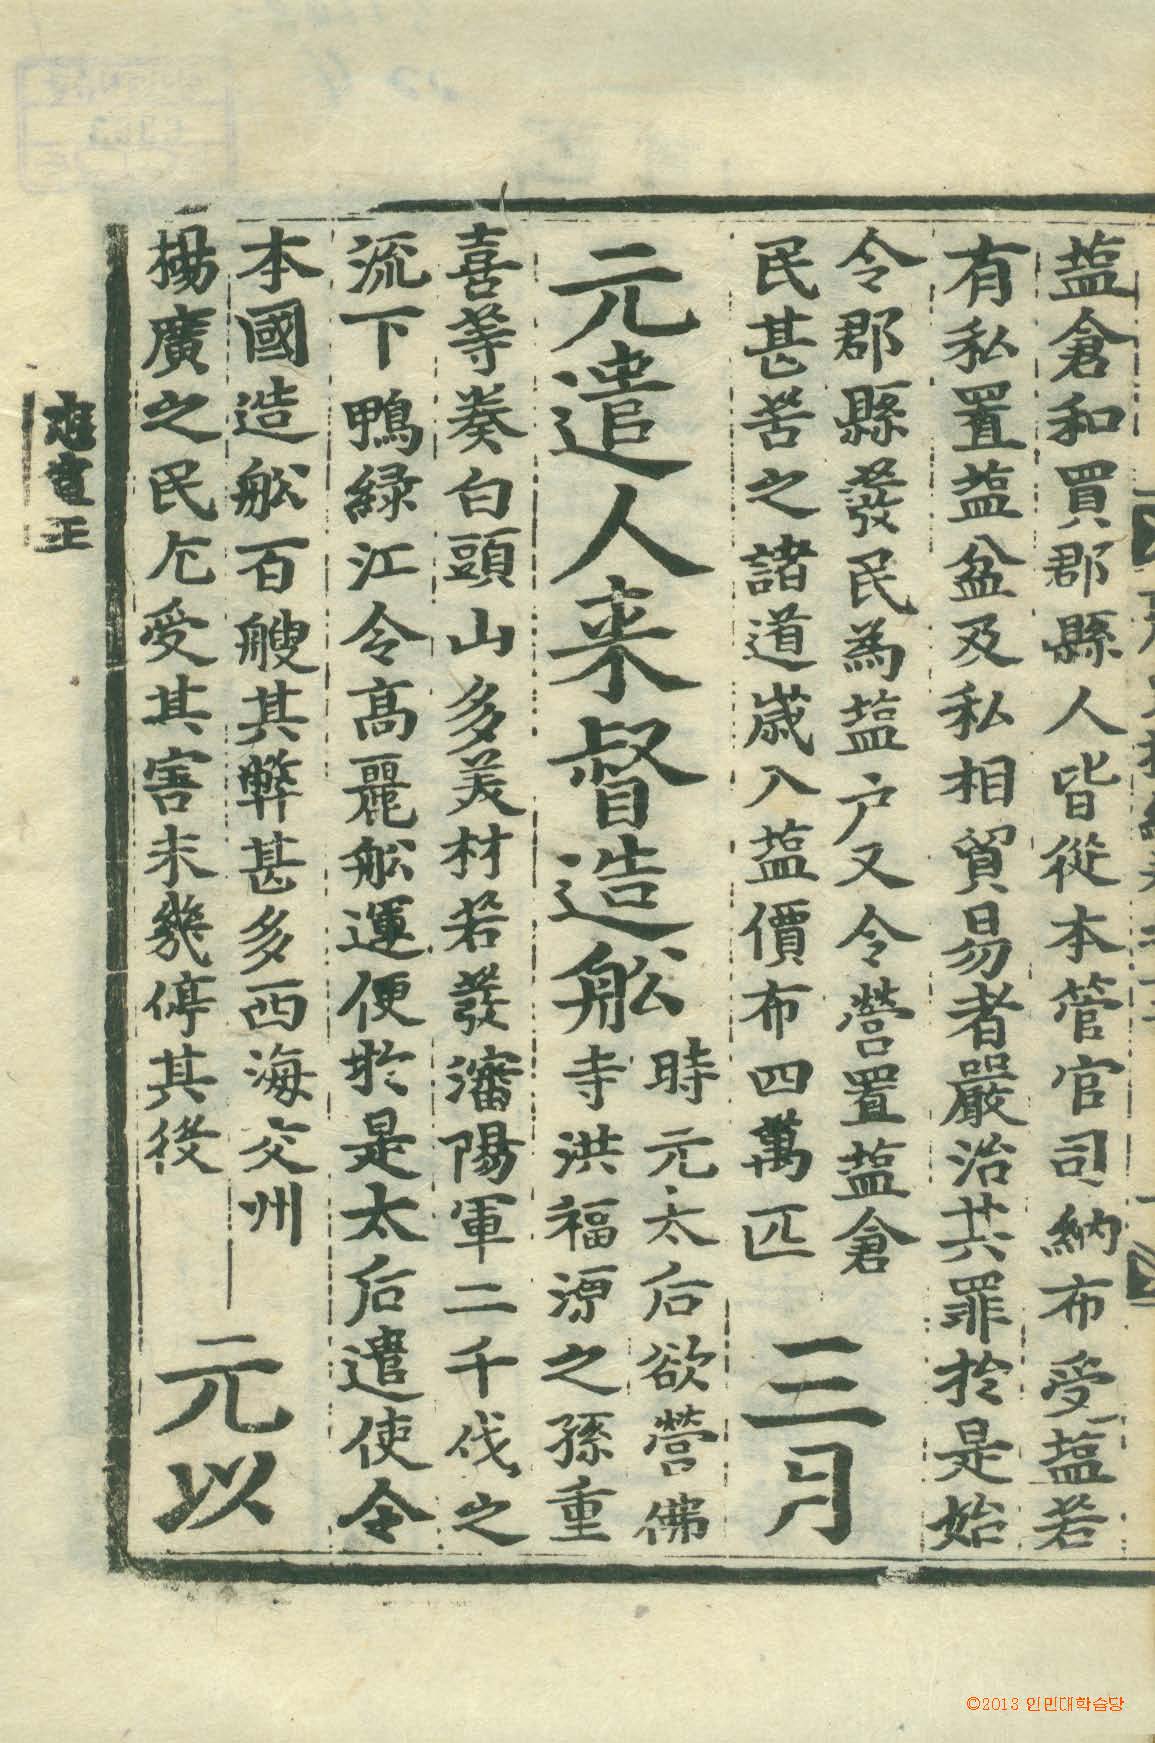 塩倉和買郡縣人皆從本管官司納布受塩若
有私置塩盆及私相貿易者嚴治其罪於是始
令郡縣發民為塩户又令營置塩倉
民甚苦之諸道歳入塩價布四萬匹
三月
元遣人来督造舩
時元太后欲營佛
寺洪福源之孫重
喜等奏白頭山多美材若發瀋陽軍二千伐之
流下鴨緑江令高麗舩運便於是太后遣使令
本國造舩百艘其弊甚多西海交州
楊廣之民尤受其害未幾停其役
元以
忠宣王
©2013 인민대학습당